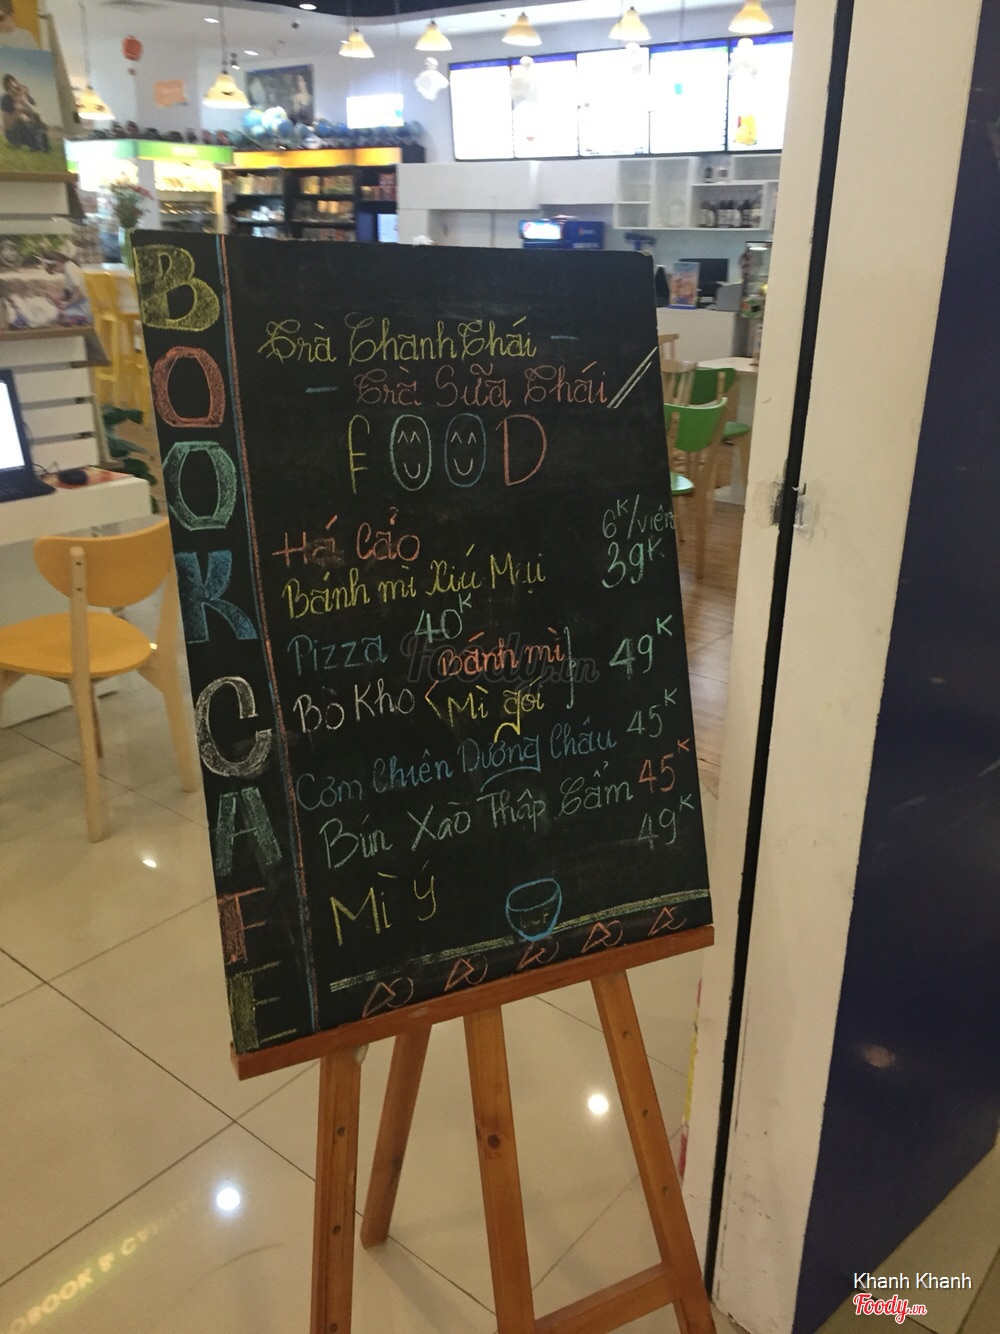 BOOK CAFE
Trà Chanh Thái -
- Trà Sữa Thái //
FOOD
Há Cảo 6K/viên
Bánh mì Xíu Mại 39K
Pizza 40K
Bò Kho < Bánh mì
Mì gói } 49K
Cơm Chiên Dương Châu 45K
Bún Xào Thập Cẩm 45K
Mì Ý 49K
Foody.vn
Khanh Khanh
Foody.vn